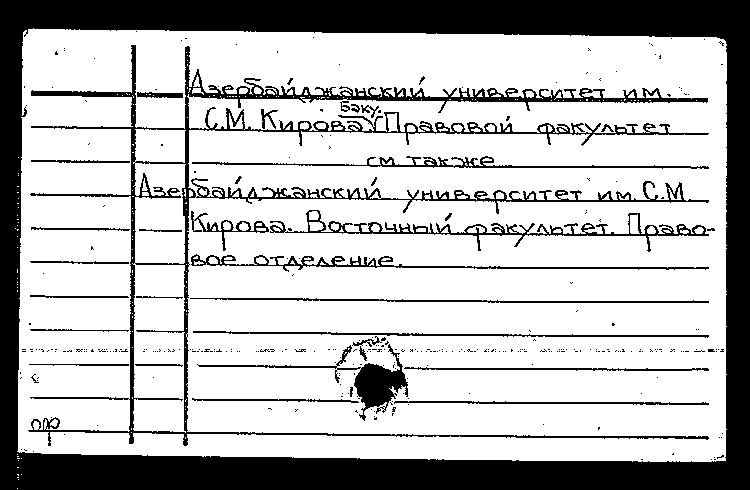 Азербайджанский университет им.
Баку.
С.М. Кирова. Правовой факультет
см. также
Азербайджанский университет им. С.М.
Кирова. Восточный факультет. Право-
вое отделение.